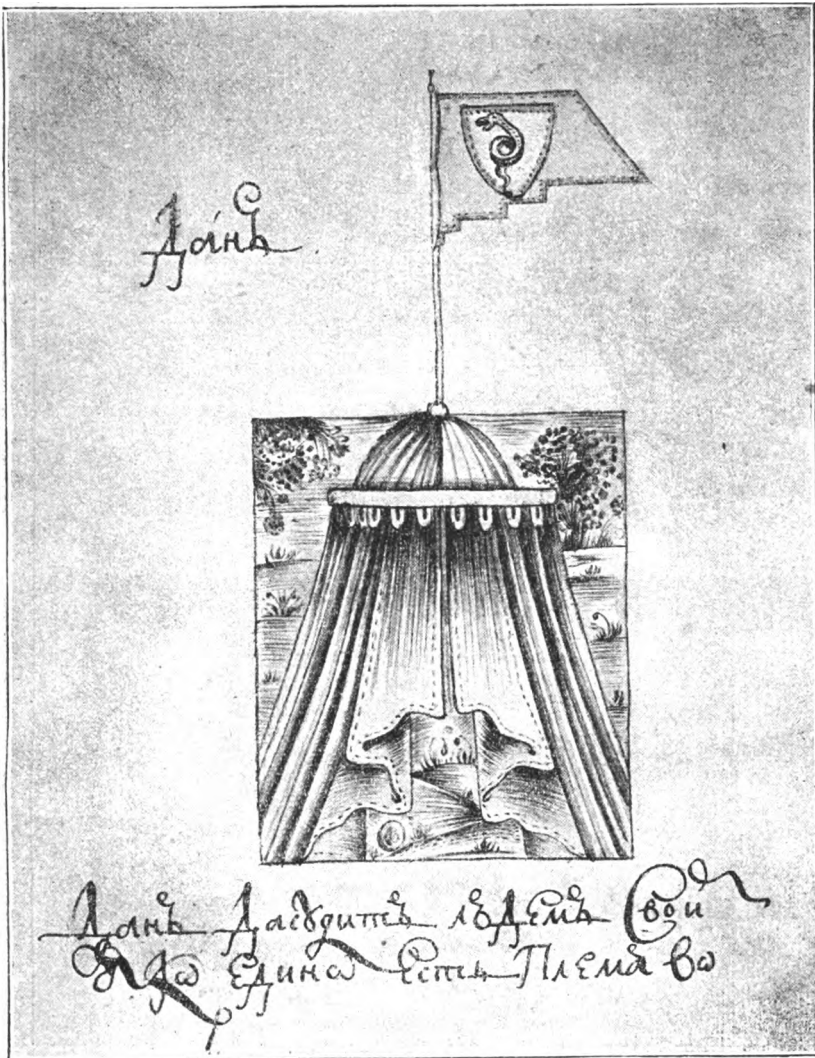 Да́нъ
Данъ Дасудитъ люДемъ Свои
Якѡ ЕДинѡ Есть Племѧ Вѡ